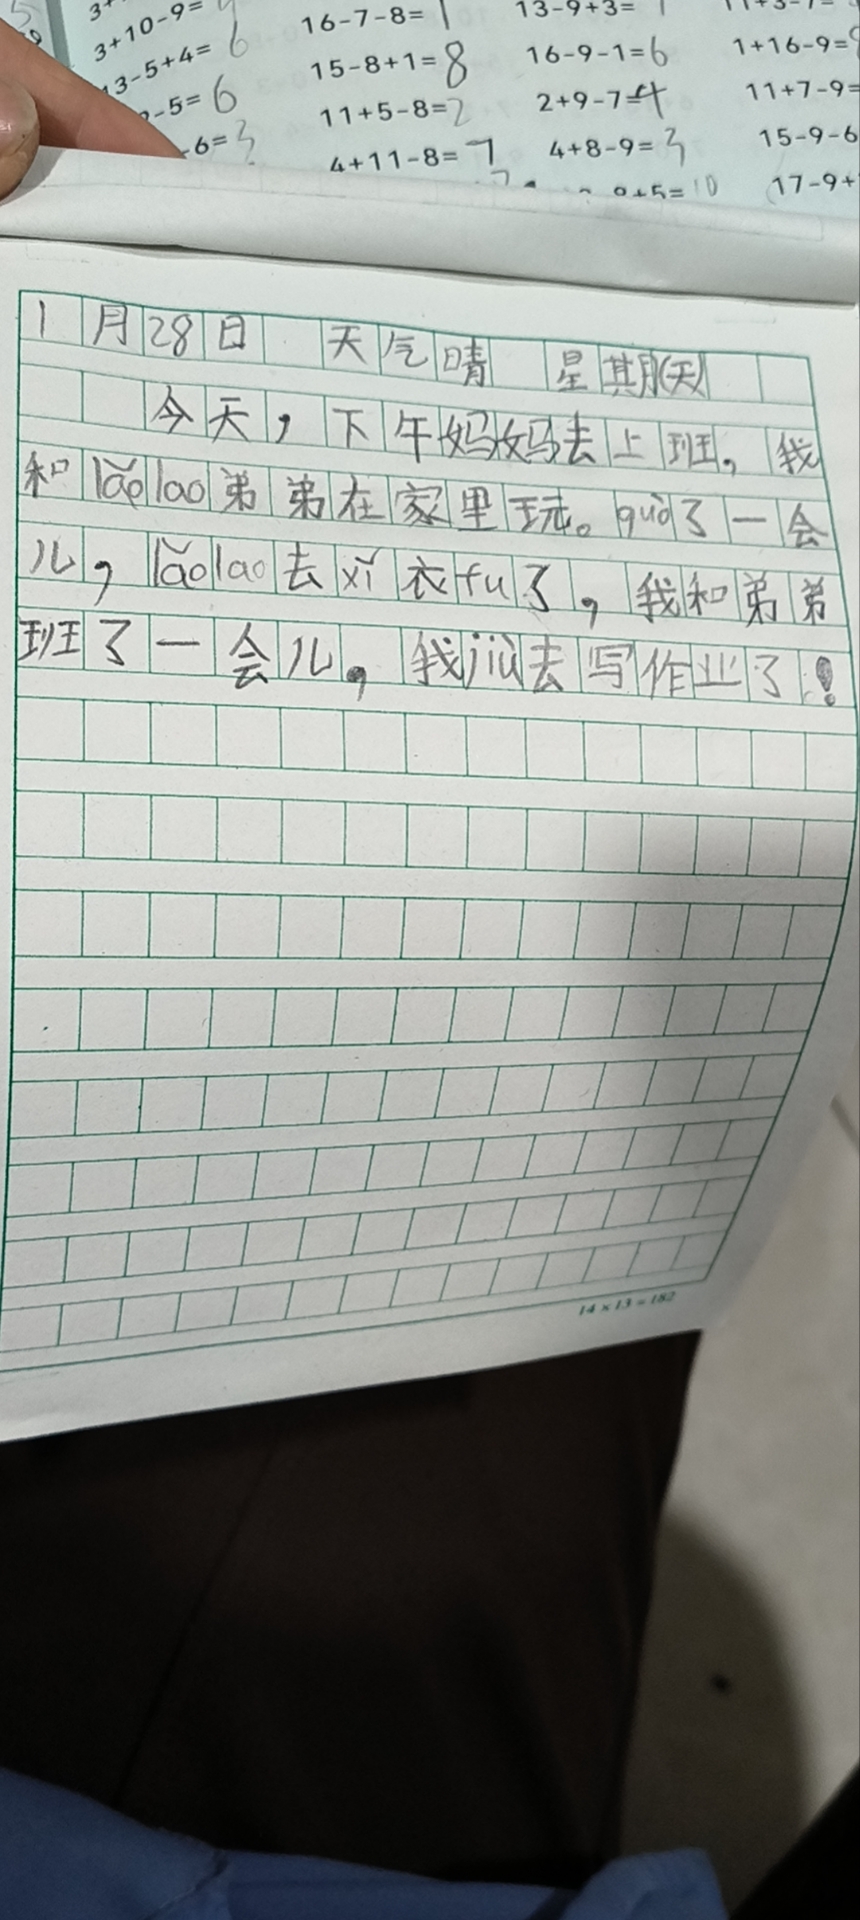 3+10-9=
16-7-8=1
13-9+3=
13-5+4=6
15-8+1=8
16-9-1=6
1+16-9=
-5=6
11+5-8=2
2+9-7=4
11+7-9=
-6=3
4+11-8=7
4+8-9=3
15-9-6
9+5=10
17-9+
1月28日 天气晴 星期(天)
今天，下午妈妈去上班，我
和lǎolao弟弟在家里玩。guò了一会
儿，lǎolao去xǐ衣fu了，我和弟弟
班了一会儿，我jiù去写作业了！
14×13=182